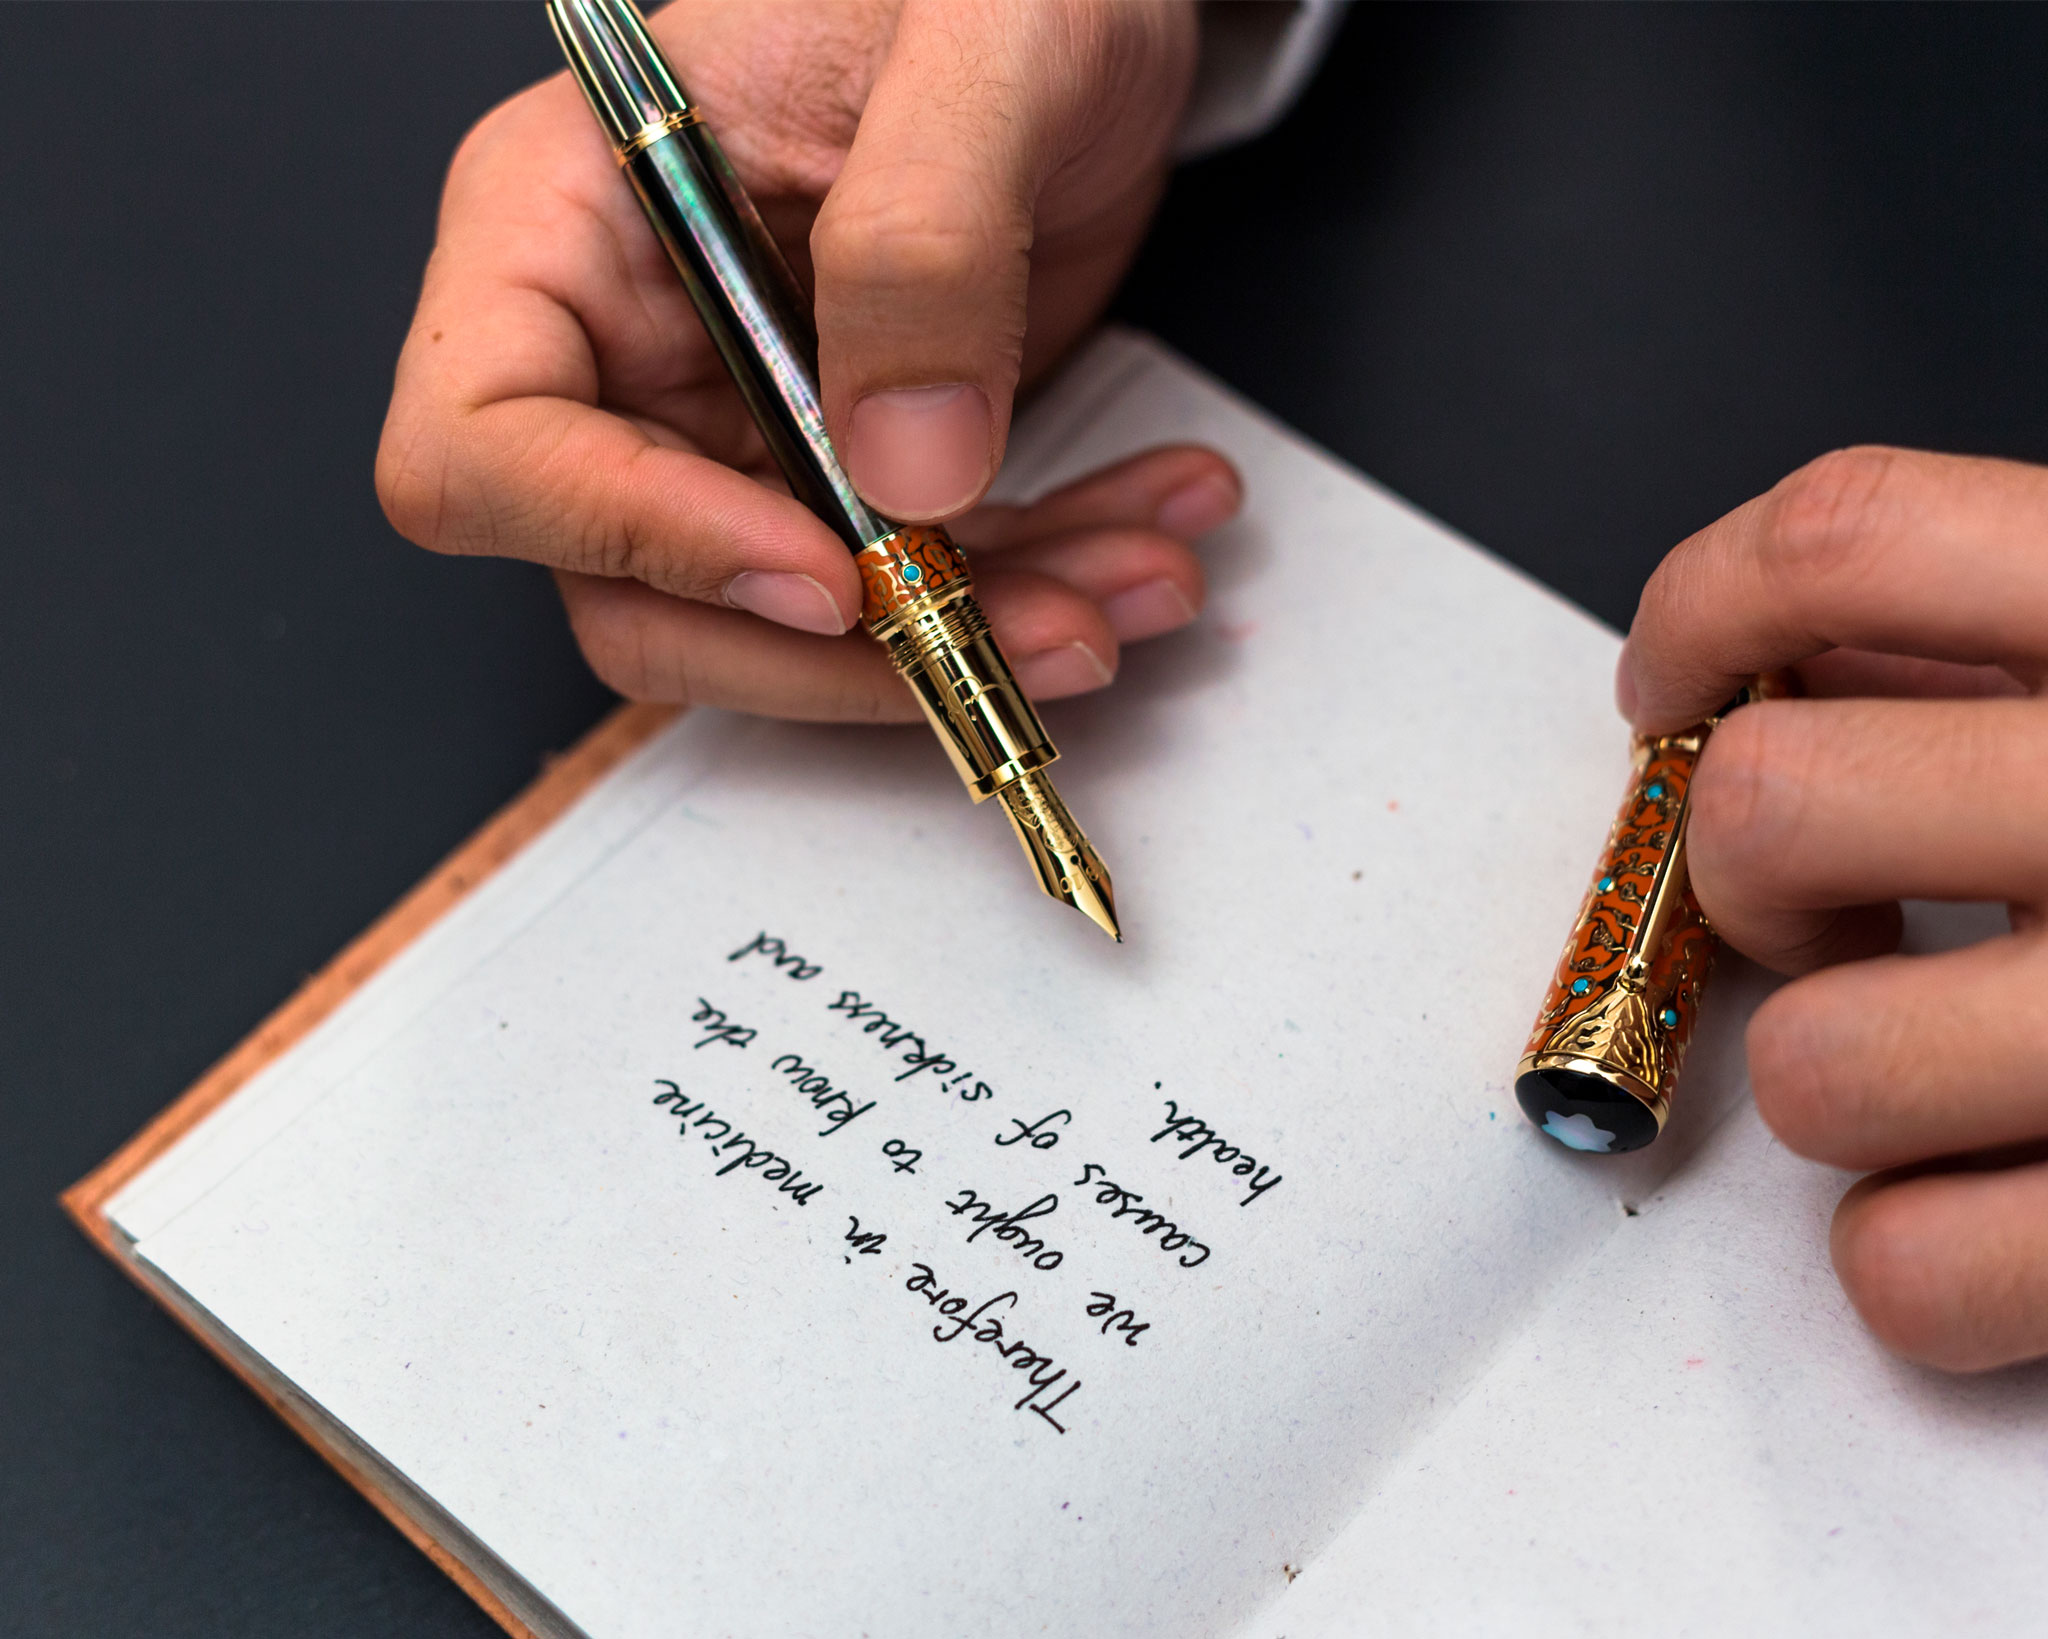 Therefore in medicine
we ought to know the
causes of sickness and
health.